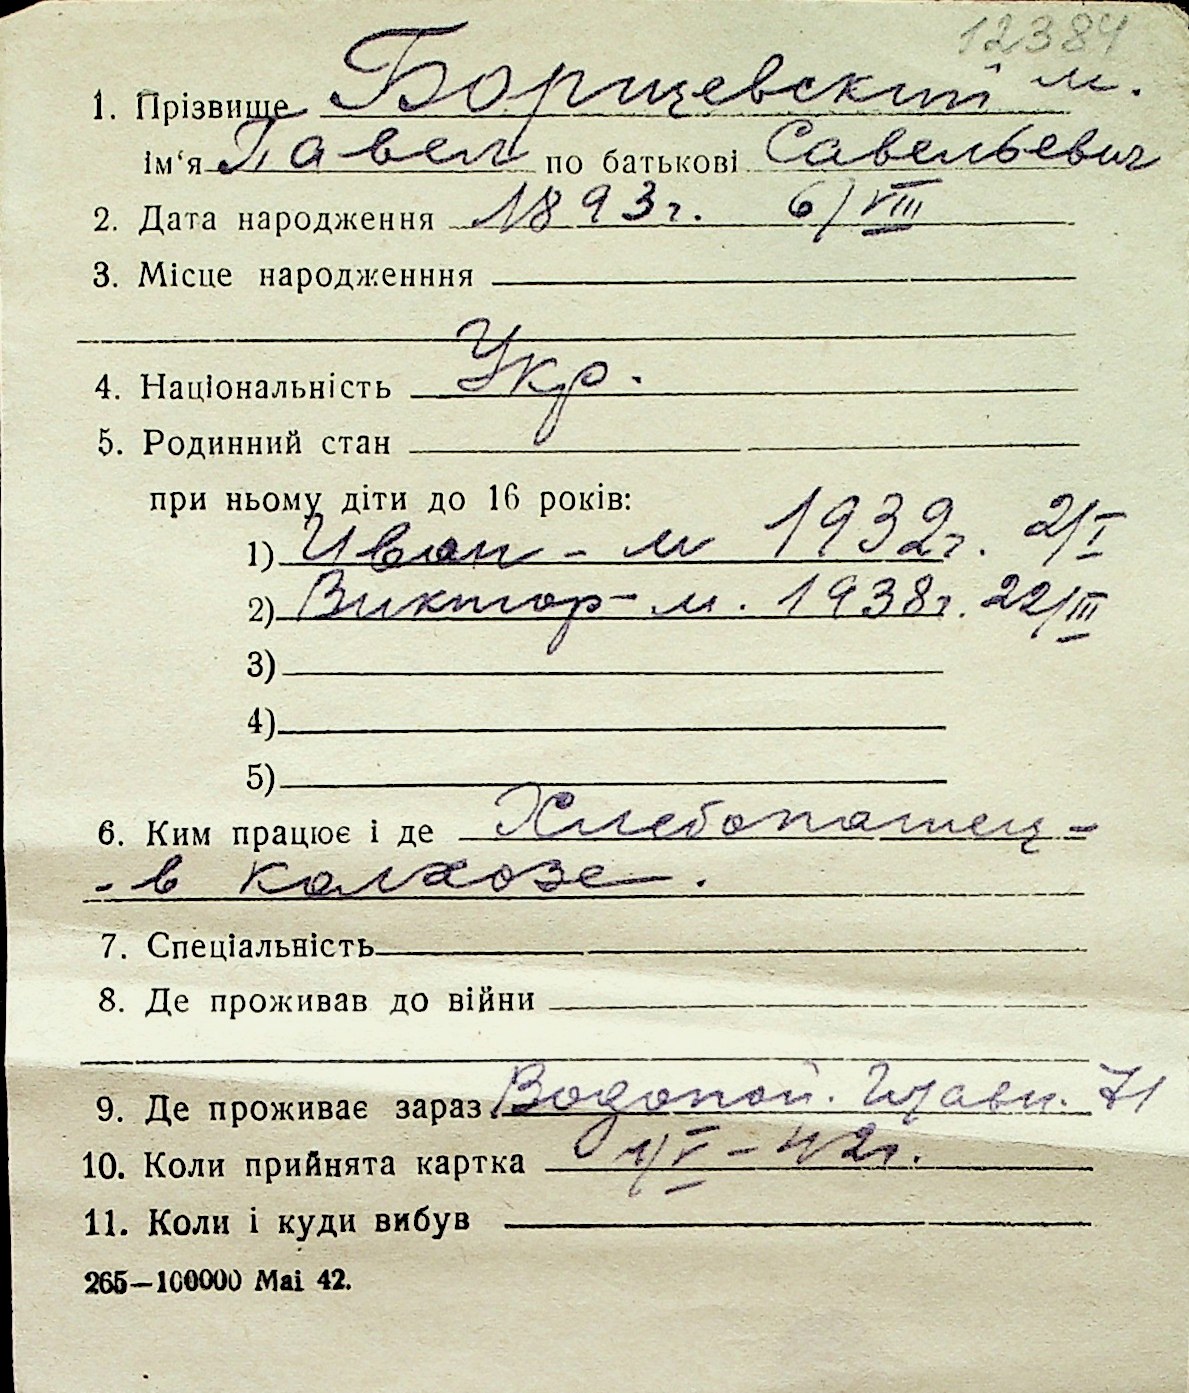 12384
1. Прізвище Борщевский м.
ім‘я Павел по батькові Савельевич
2. Дата народження 1893г. 6/VIII
3. Місце народженння
4. Національність Укр.
5. Родинний стан
при ньому діти до 16 років:
1) Иван - м 1932г. 2/I
2) Виктор - м. 1938г. 22/III
3)
4)
5)
6. Ким працює і де Хлебопашец -
- в колхозе.
7. Спеціальність
8. Де проживав до війни
9. Де проживає зараз Водопой. Главн. 71
10. Коли прийнята картка 1/V - 42г.
11. Коли і куди вибув
265—100000 Mai 42.